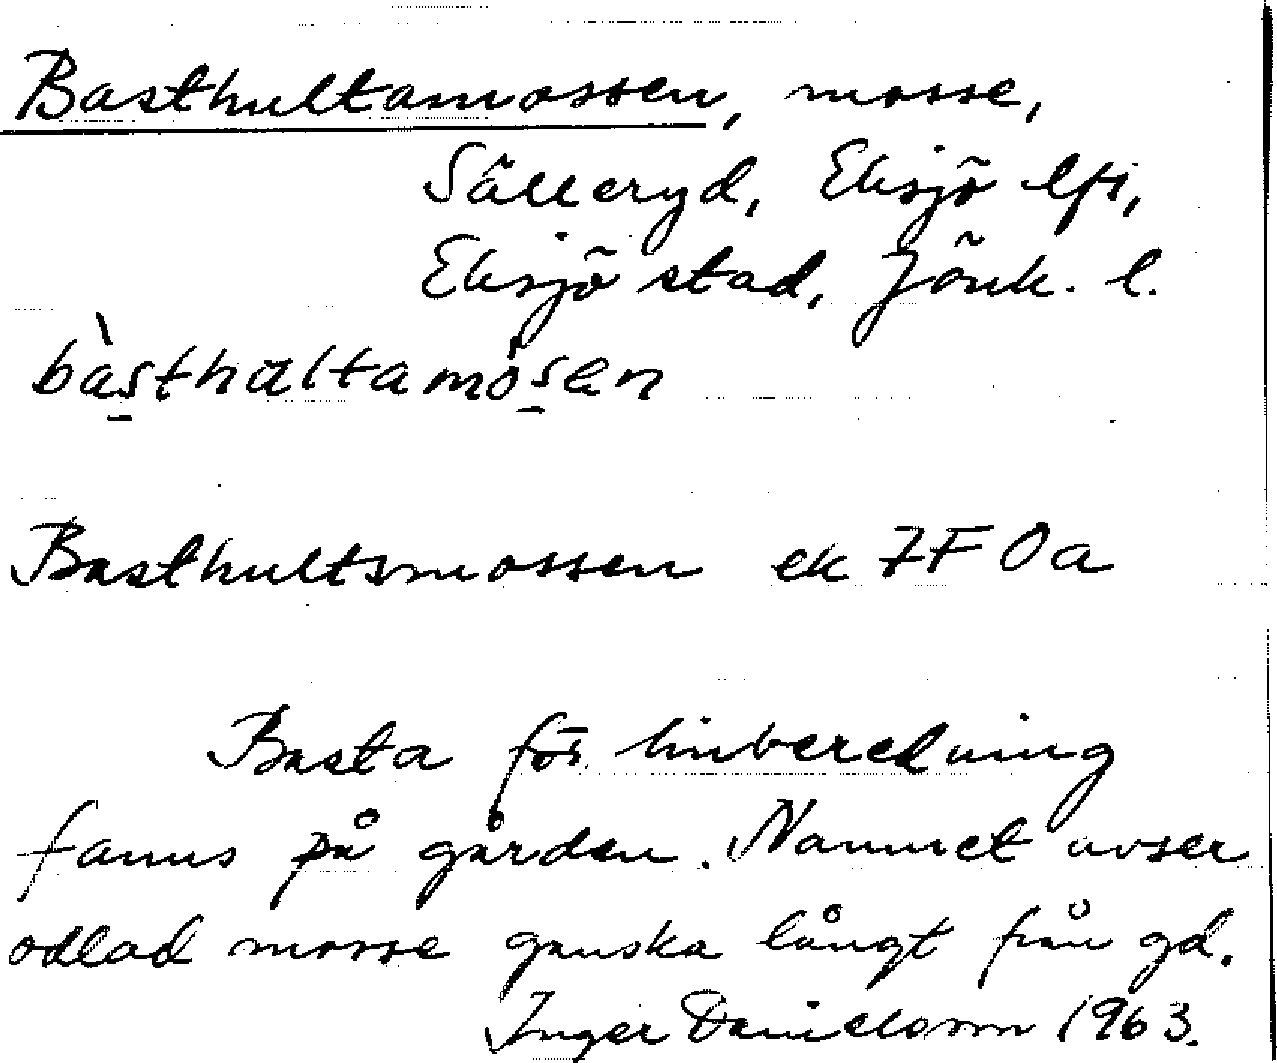 Basthultamossen, mosse,
Sälleryd, Eksjö lfs,
Eksjö stad, Jönk. l.
bàsthaltamósen
Basthultsmossen ek 7F 0a
Basta för linberedning
fanns på gården. Namnet avser
odlad mosse ganska långt från gd.
Inger Danielsson 1963.